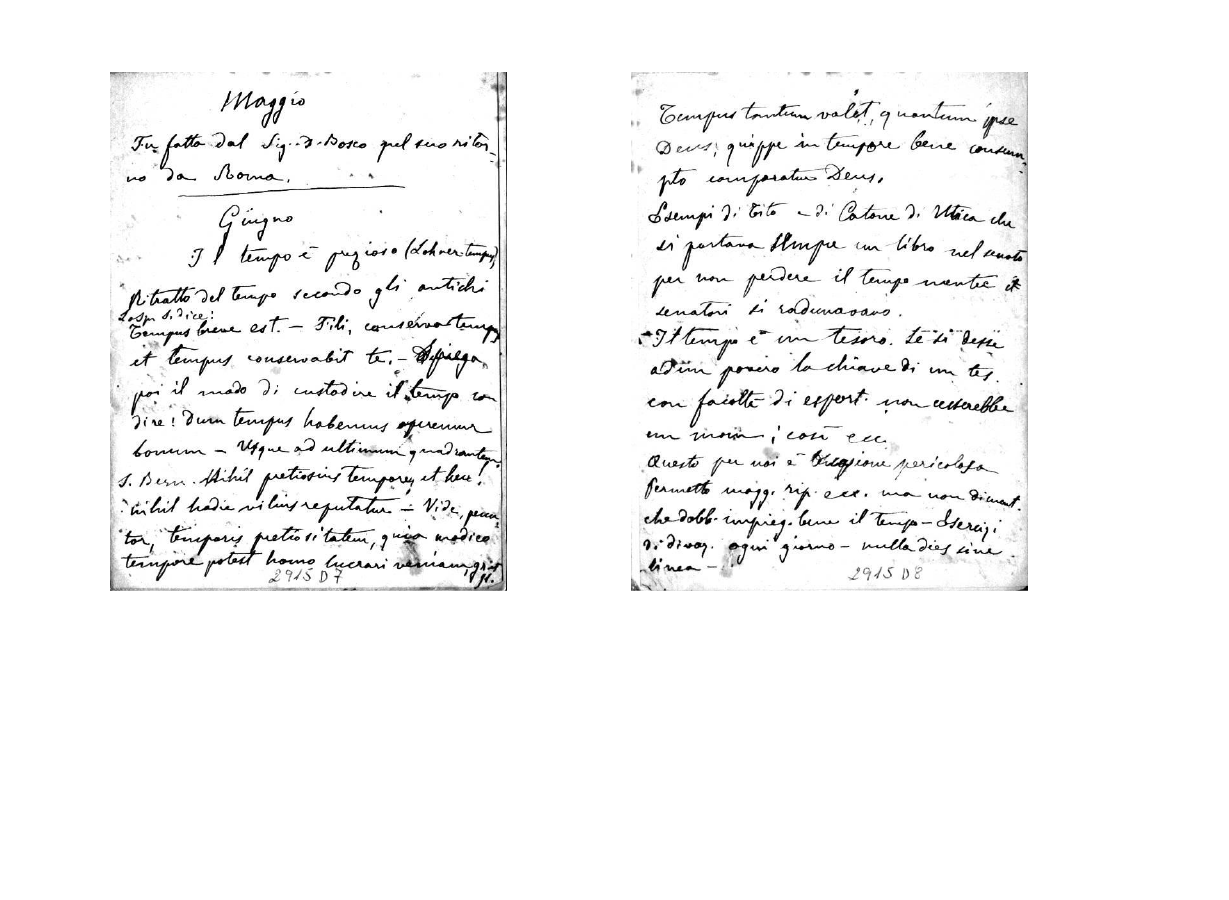 Maggio
Fu fatta dal Sig. D. Bosco pel suo ritor-
no da Roma.
Giugno
Il tempo è prezioso (Lohner tempus)
Ritratto del tempo secondo gli antichi
Lo Sp. S. dice:
Tempus breve est. — Fili, conserva temp
et tempus conservabit te. — Spiega
poi il modo di custodire il tempo con
dire: Dum tempus habemus operemur
bonum — Usque ad ultimum quadrantem
S. Bern. Nihil pretiosius tempore, et heu!
nihil hodie vilius reputatur — Vide, pecca-
tor, temporis pretiositatem, quia modico
tempore potest homo lucrari veniam, grat
gl.
2915 D7
Tempus tantum valet, quantum ipse
Deus, quippe in tempore bene consum-
pto comparatur Deus.
Esempi di Tito e di Catone di Utica che
si portava sempre un libro nel senato
per non perdere il tempo mentre i
senatori si radunavano.
Il tempo è un tesoro. Se si desse
ad un povero la chiave di un tes.
con facoltà di esport. non cesserebbe
un mom; così ecc.
Questo per noi è stagione pericolosa
Permetto magg. rip. ecc. ma non diment.
che dobb. impieg. bene il tempo — Esercizi
di divoz. ogni giorno — nulla dies sine
linea —
2915 D8